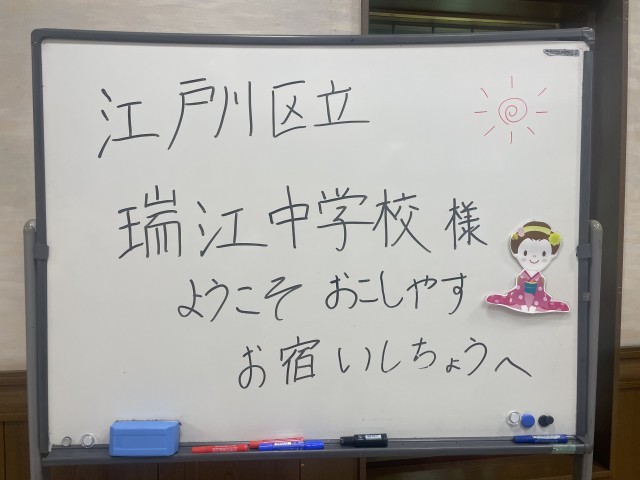 江戸川区立
瑞江中学校 様
ようこそ おこしやす
お宿いしちょうへ